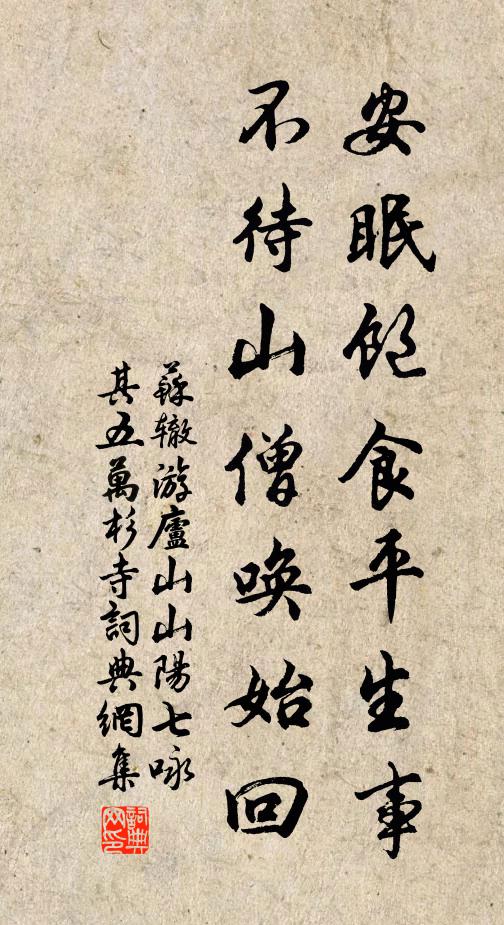 安眠飽食平生事
不待山僧喚始回
蘇轍游廬山山陽七咏
其五萬杉寺詞典網集
詞典
网印